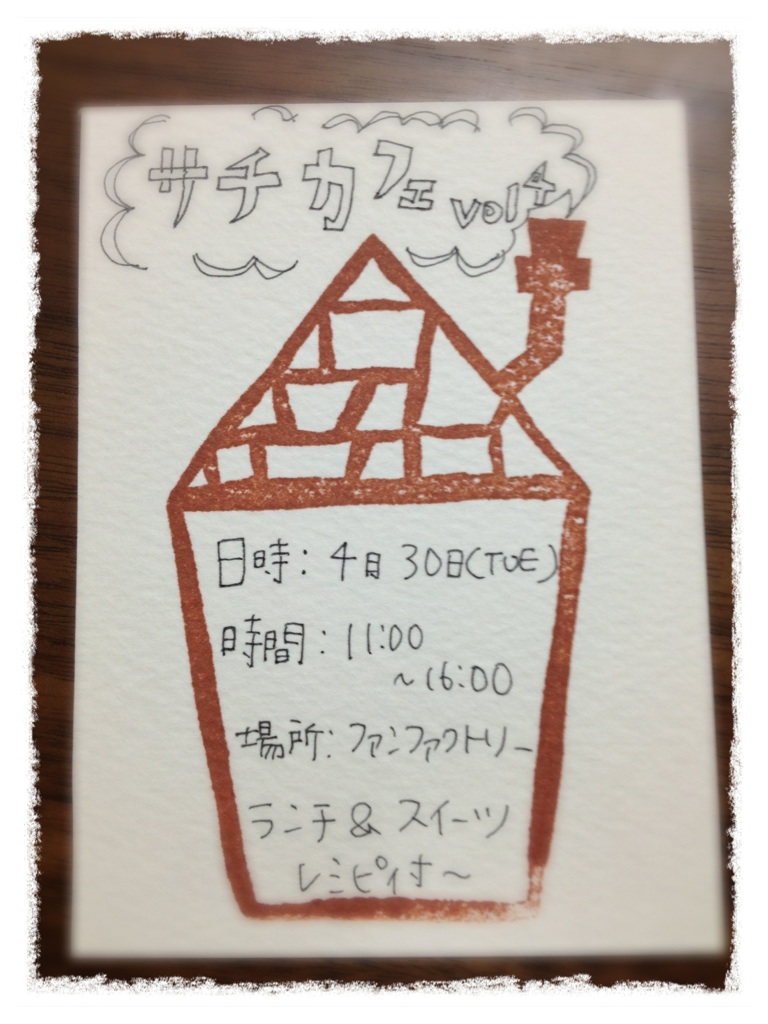 サチカフェ vol4
日時：4月30日(TUE)
時間：11:00
～16:00
場所：ファンファクトリー
ランチ&スイーツ
レシピ付～